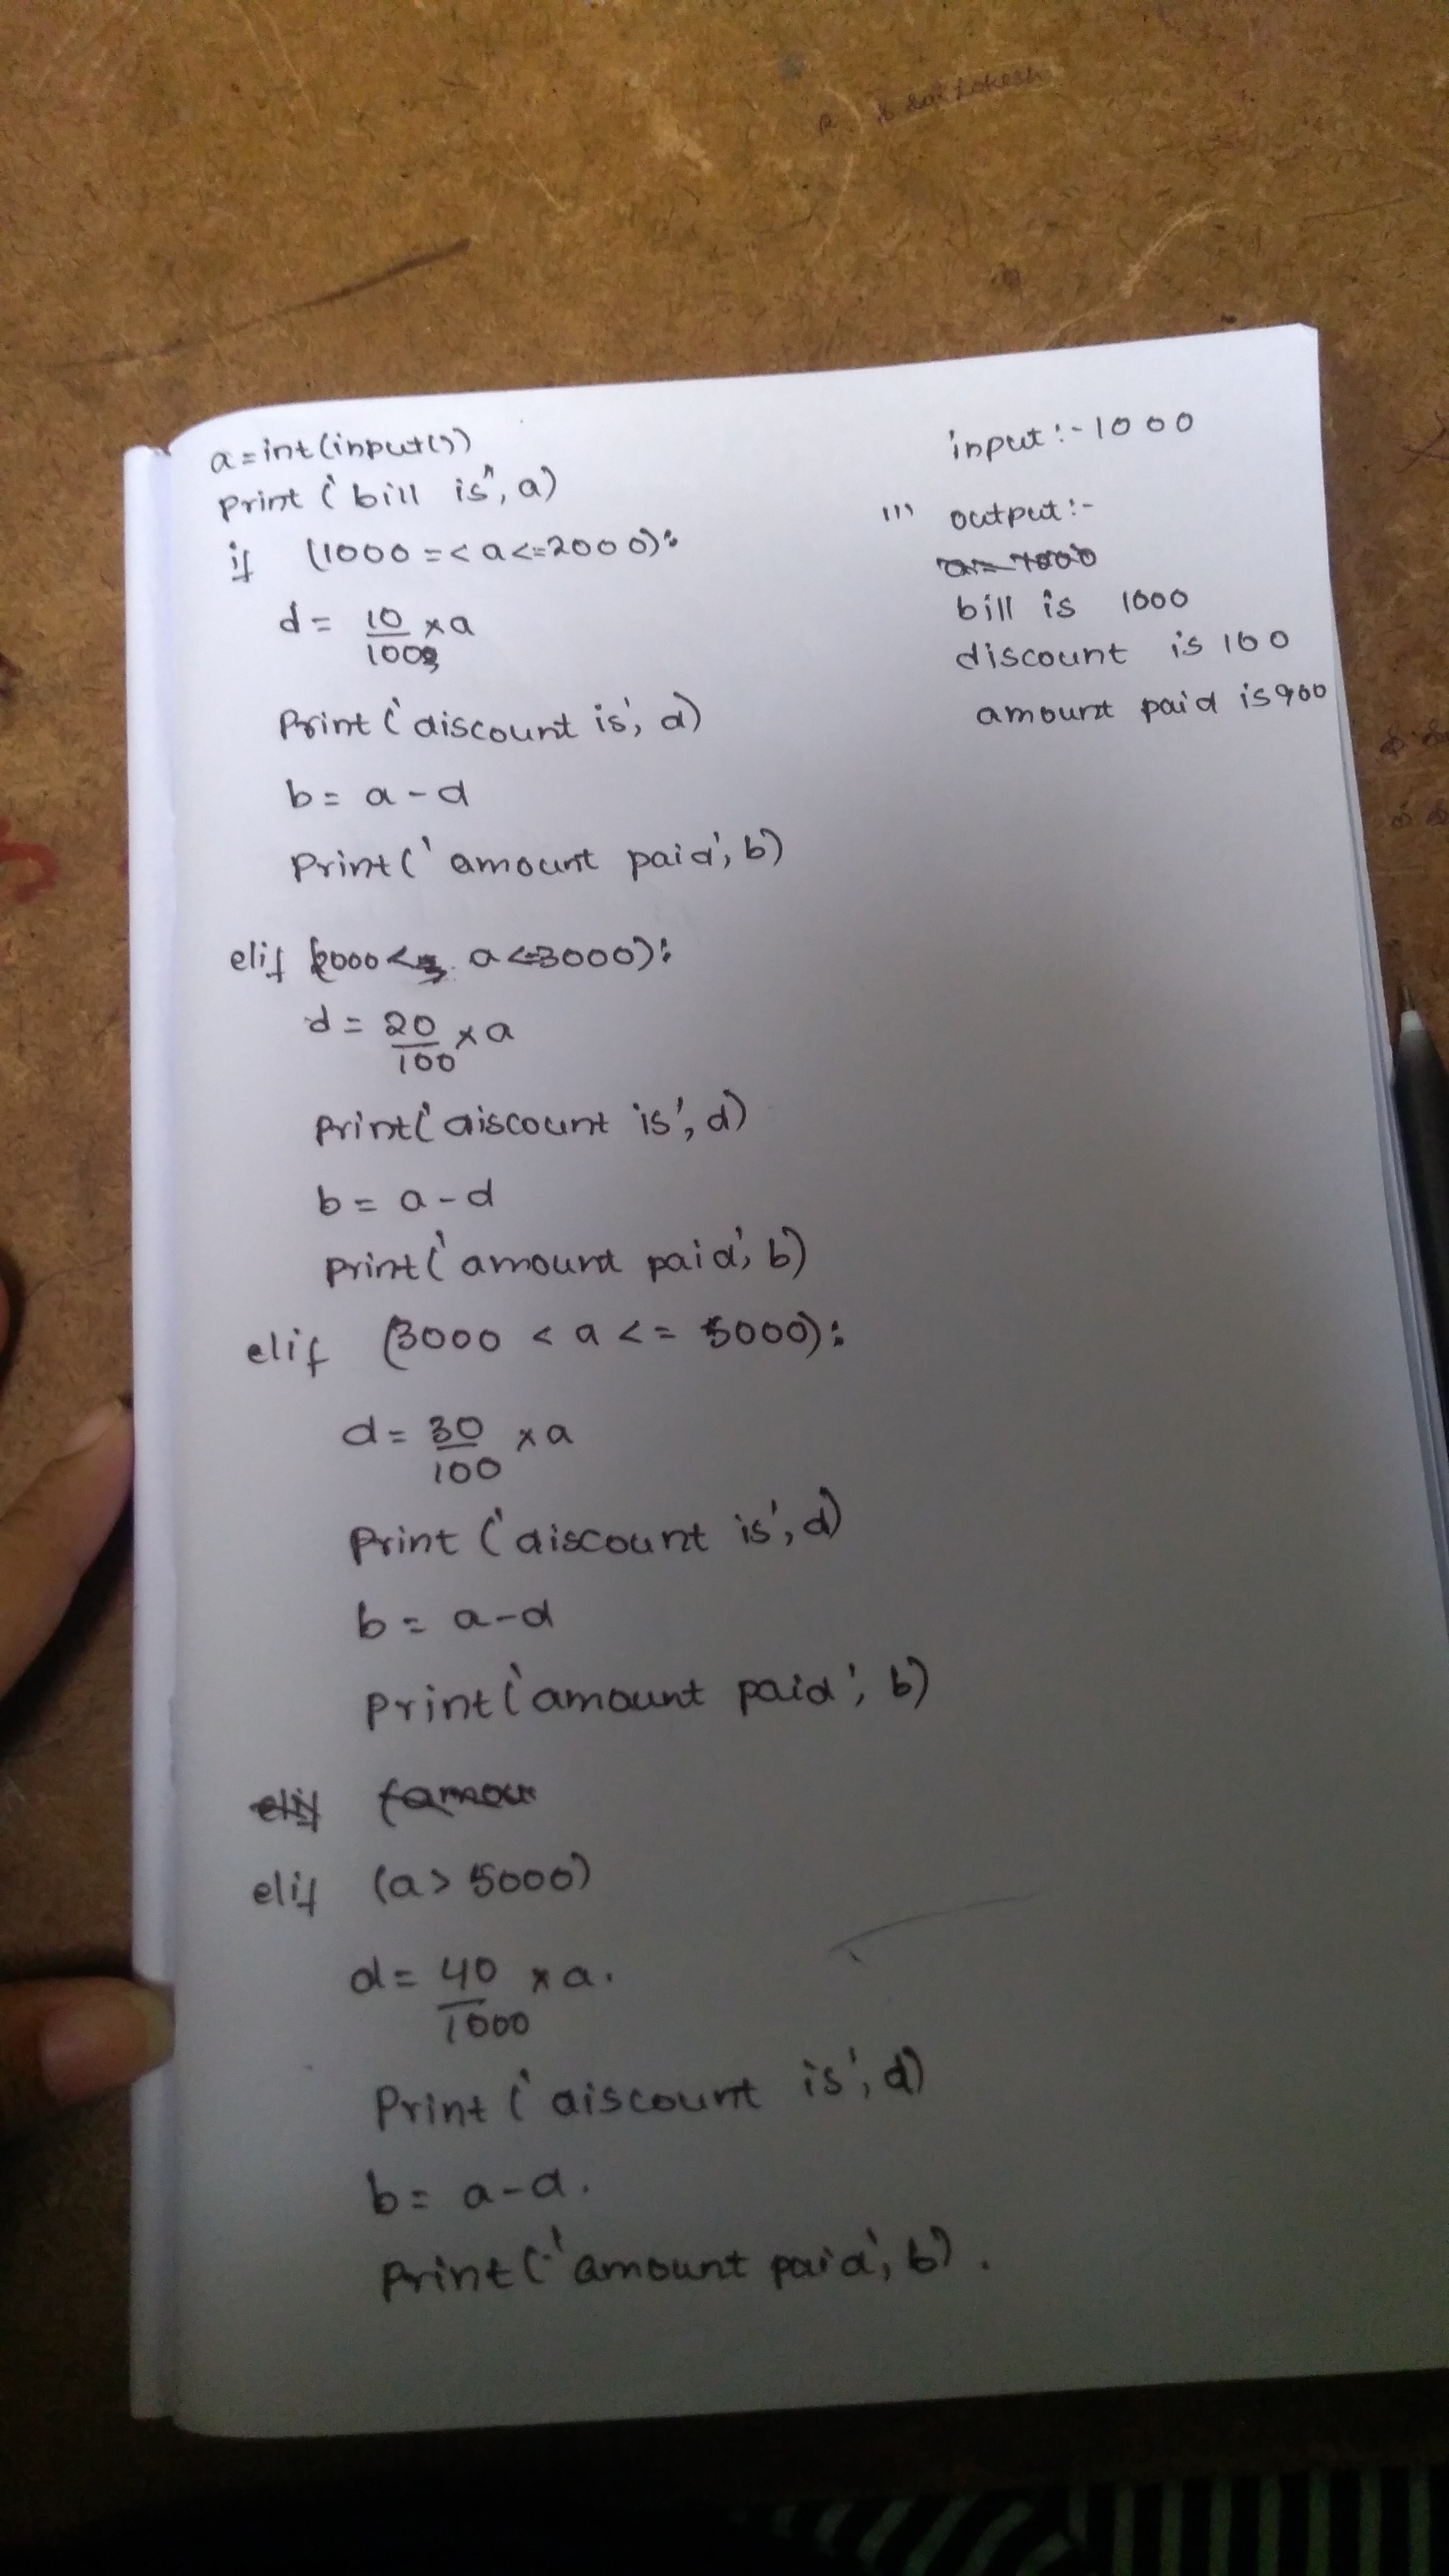 a=int(input())
print ('bill is", a)
if (1000 =< a<=2000):
d = 10/100 × a
Print ('discount is', d)
b = a - d
Print (' amount paid', b)
elif (2000 < a <=3000):
d = 20/100 × a
Print ('discount is', d)
b = a - d
Print ('amount paid', b)
elif (3000 < a <= 5000):
d = 30/100 × a
Print ('discount is', d)
b = a-d
Print ('amount paid', b)
elif
elif (a > 5000)
d = 40/1000 × a.
Print ('discount is', d)
b = a-d.
Print ('amount paid', b).
input :- 1000
''' output :-
a = 1000
bill is 1000
discount is 100
amount paid is 900